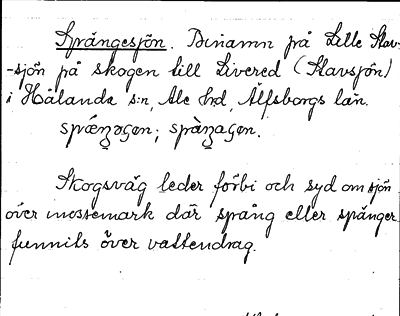 Sprängesjön. Binamn på Lille Stav-
-sjön på skogen till Livered (Stavsjön)
i Hålanda s:n, Ale hd, Älfsborgs län.
Skogsväg leder förbi och syd om sjön
över mossemark där spång eller spänger
funnits över vattendrag.